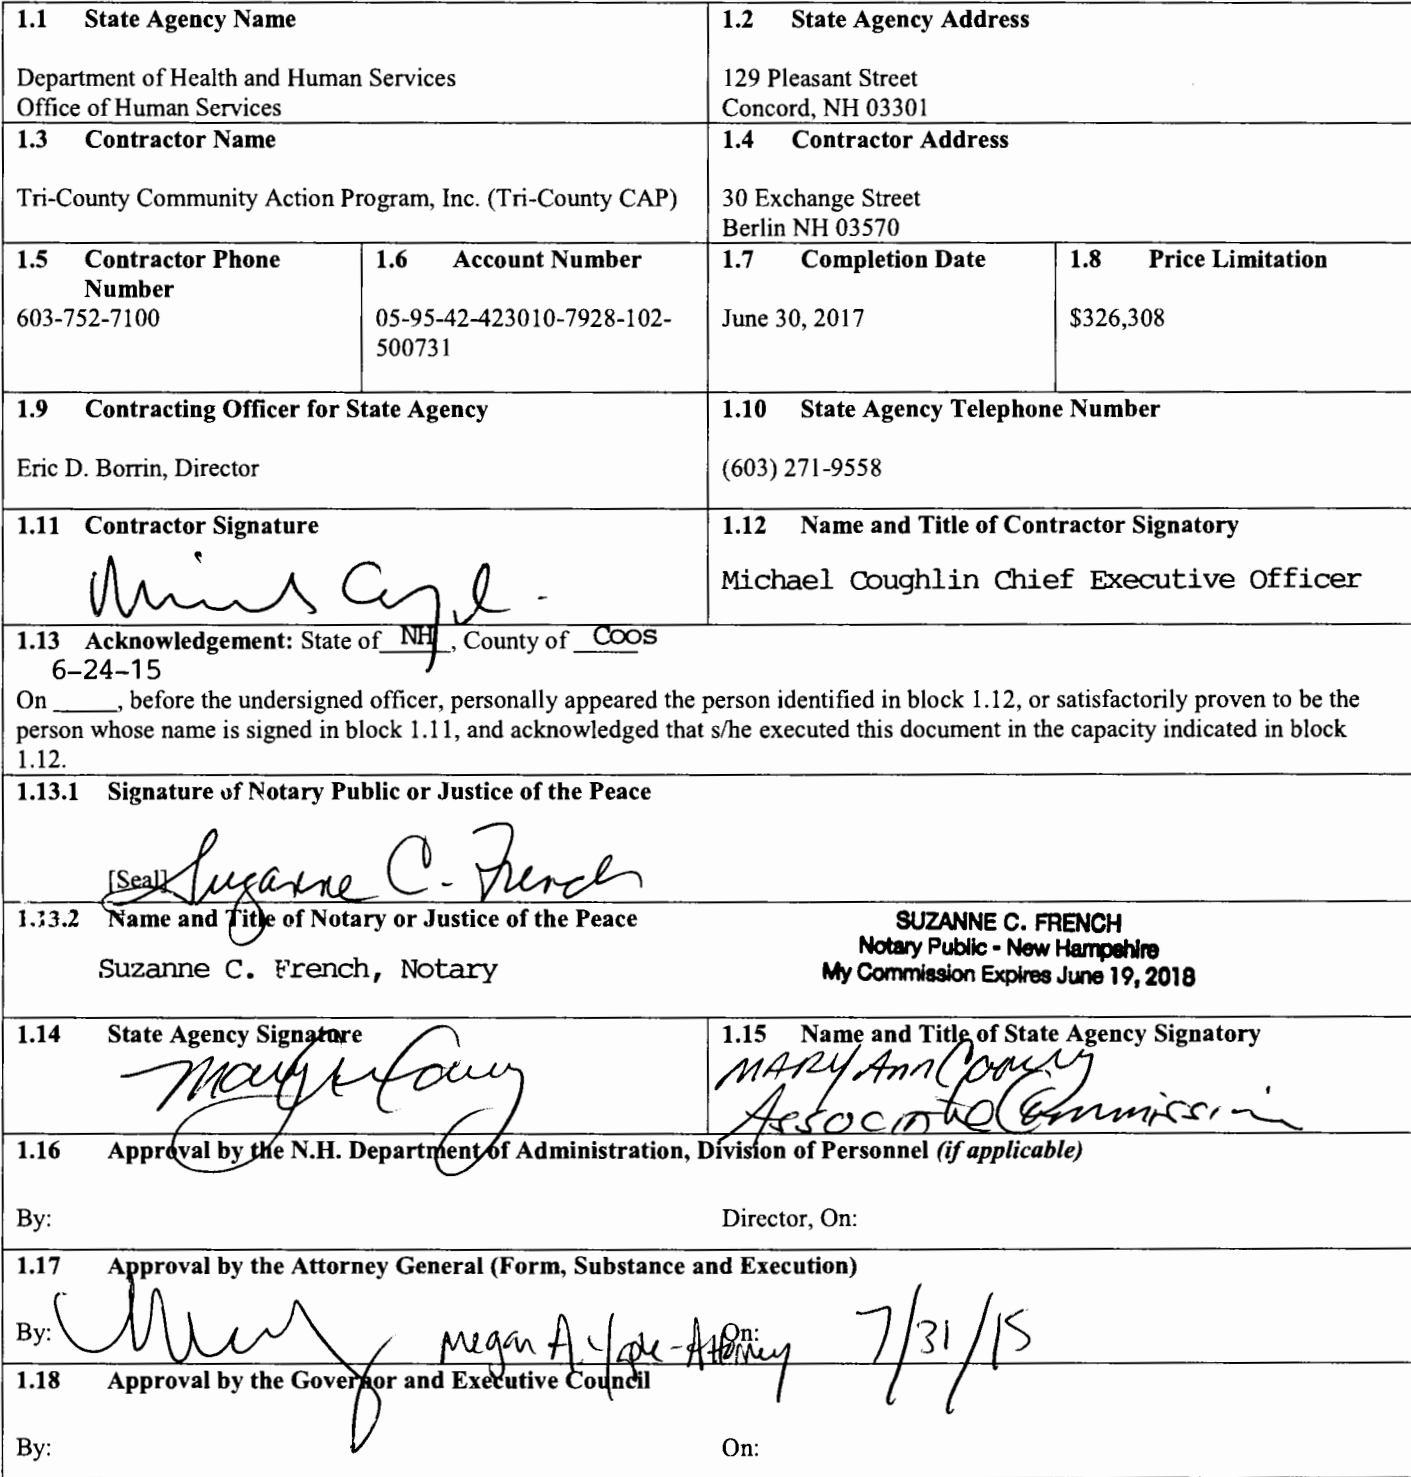 1.1 State Agency Name
Department of Health and Human Services
Office of Human Services
1.2 State Agency Address
129 Pleasant Street
Concord, NH 03301
1.3 Contractor Name
Tri-County Community Action Program, Inc. (Tri-County CAP)
1.4 Contractor Address
30 Exchange Street
Berlin NH 03570
1.5 Contractor Phone
Number
603-752-7100
1.6 Account Number
05-95-42-423010-7928-102-
500731
1.7 Completion Date
June 30, 2017
1.8 Price Limitation
$326,308
1.9 Contracting Officer for State Agency
Eric D. Borrin, Director
1.10 State Agency Telephone Number
(603) 271-9558
1.11 Contractor Signature
1.12 Name and Title of Contractor Signatory
Michael Coughlin Chief Executive Officer
1.13 Acknowledgement: State of NH, County of Coos
6-24-15
On _____, before the undersigned officer, personally appeared the person identified in block 1.12, or satisfactorily proven to be the
person whose name is signed in block 1.11, and acknowledged that s/he executed this document in the capacity indicated in block
1.12.
1.13.1 Signature of Notary Public or Justice of the Peace
[Seal] Suzanne C. French
1.13.2 Name and Title of Notary or Justice of the Peace
Suzanne C. French, Notary
SUZANNE C. FRENCH
Notary Public - New Hampshire
My Commission Expires June 19, 2018
1.14 State Agency Signature
1.15 Name and Title of State Agency Signatory
MARY Ann Cooney
Associate Commission
1.16 Approval by the N.H. Department of Administration, Division of Personnel (if applicable)
By:
Director, On:
1.17 Approval by the Attorney General (Form, Substance and Execution)
By: Megan A. - Attorney On: 7/31/15
1.18 Approval by the Governor and Executive Council
By:
On: